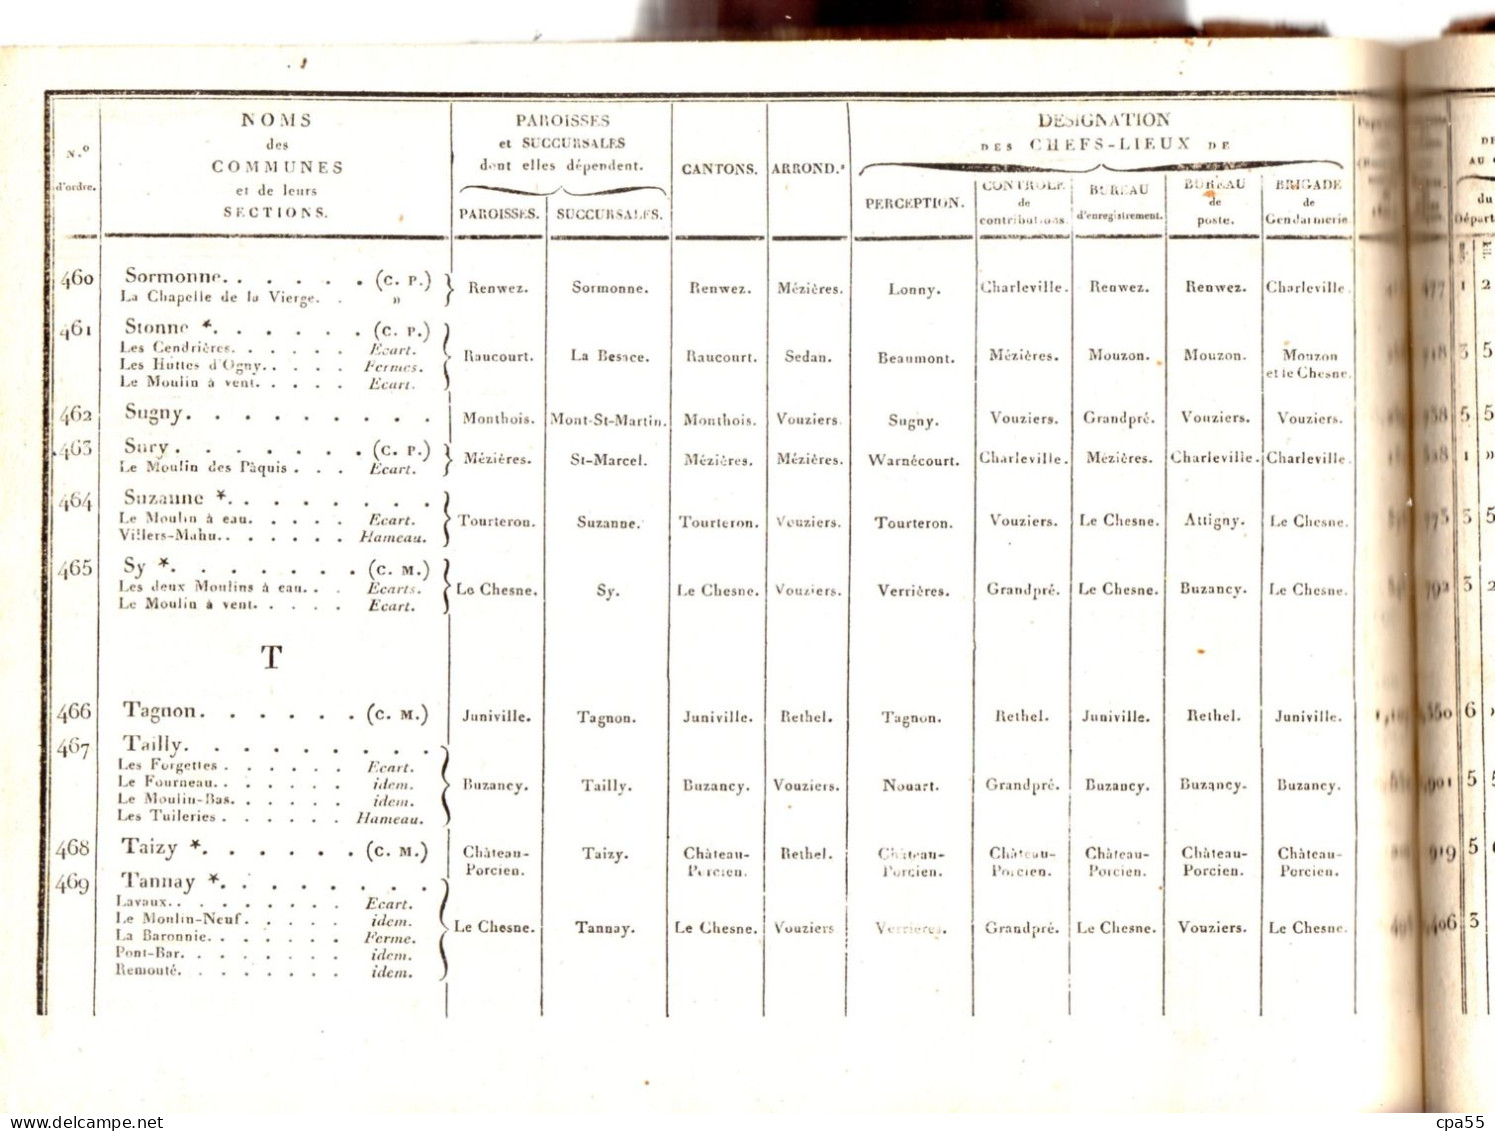 N.º d'ordre.
NOMS des COMMUNES et de leurs SECTIONS.
PAROISSES et SUCCURSALES dont elles dépendent.
PAROISSES. SUCCURSALES.
CANTONS.
ARROND.ˢ
DÉSIGNATION DES CHEFS-LIEUX DE
PERCEPTION.
CONTRÔLE de contributions.
BUREAU d'enregistrement.
BUREAU de poste.
BRIGADE de Gendarmerie
460 Sormonne. . . . . . (C. P.) Renwez. Sormonne. Renwez. Mézières. Lonny. Charleville. Renwez. Renwez. Charleville. 1 2
La Chapelle de la Vierge. . »
461 Stonne *. . . . . . (C. P.) Raucourt. La Besace. Raucourt. Sedan. Beaumont. Mézières. Mouzon. Mouzon. Mouzon et le Chesne. 3 5
Les Cendrières. . . . . . Ecart.
Les Huttes d'Ogny. . . . . Fermes.
Le Moulin à vent. . . . . Ecart.
462 Sugny. . . . . . . . . Monthois. Mont-St-Martin. Monthois. Vouziers. Sugny. Vouziers. Grandpré. Vouziers. Vouziers. 5 5
463 Sury. . . . . . . (C. P.) Mézières. St-Marcel. Mézières. Mézières. Warnécourt. Charleville. Mézières. Charleville. Charleville. 1 »
Le Moulin des Pâquis . . . Ecart.
464 Suzanne *. . . . . . . Tourteron. Suzanne. Tourteron. Vouziers. Tourteron. Vouziers. Le Chesne. Attigny. Le Chesne. 3 5
Le Moulin à eau. . . . . Ecart.
Villers-Mahu. . . . . . . Hameau.
465 Sy *. . . . . . . (C. M.) Le Chesne. Sy. Le Chesne. Vouziers. Verrières. Grandpré. Le Chesne. Buzancy. Le Chesne. 3 2
Les deux Moulins à eau. . . Ecarts.
Le Moulin à vent. . . . . Ecart.
T
466 Tagnon. . . . . . . (C. M.) Juniville. Tagnon. Juniville. Rethel. Tagnon. Rethel. Juniville. Rethel. Juniville. 6
467 Tailly. . . . . . . . . Buzancy. Tailly. Buzancy. Vouziers. Nouart. Grandpré. Buzancy. Buzancy. Buzancy. 5
Les Forgettes . . . . . . Ecart.
Le Fourneau. . . . . . . idem.
Le Moulin-Bas. . . . . . idem.
Les Tuileries . . . . . . Hameau.
468 Taizy *. . . . . . (C. M.) Château-Porcien. Taizy. Château-Porcien. Rethel. Château-Porcien. Château-Porcien. Château-Porcien. Château-Porcien. Château-Porcien. 5
469 Tannay *. . . . . . . . Le Chesne. Tannay. Le Chesne. Vouziers Verrières. Grandpré. Le Chesne. Vouziers. Le Chesne. 3
Lavaux. . . . . . . . . Ecart.
Le Moulin-Neuf. . . . . idem.
La Baronnie. . . . . . . Ferme.
Pont-Bar. . . . . . . . idem.
Remouté. . . . . . . . idem.
cpa55